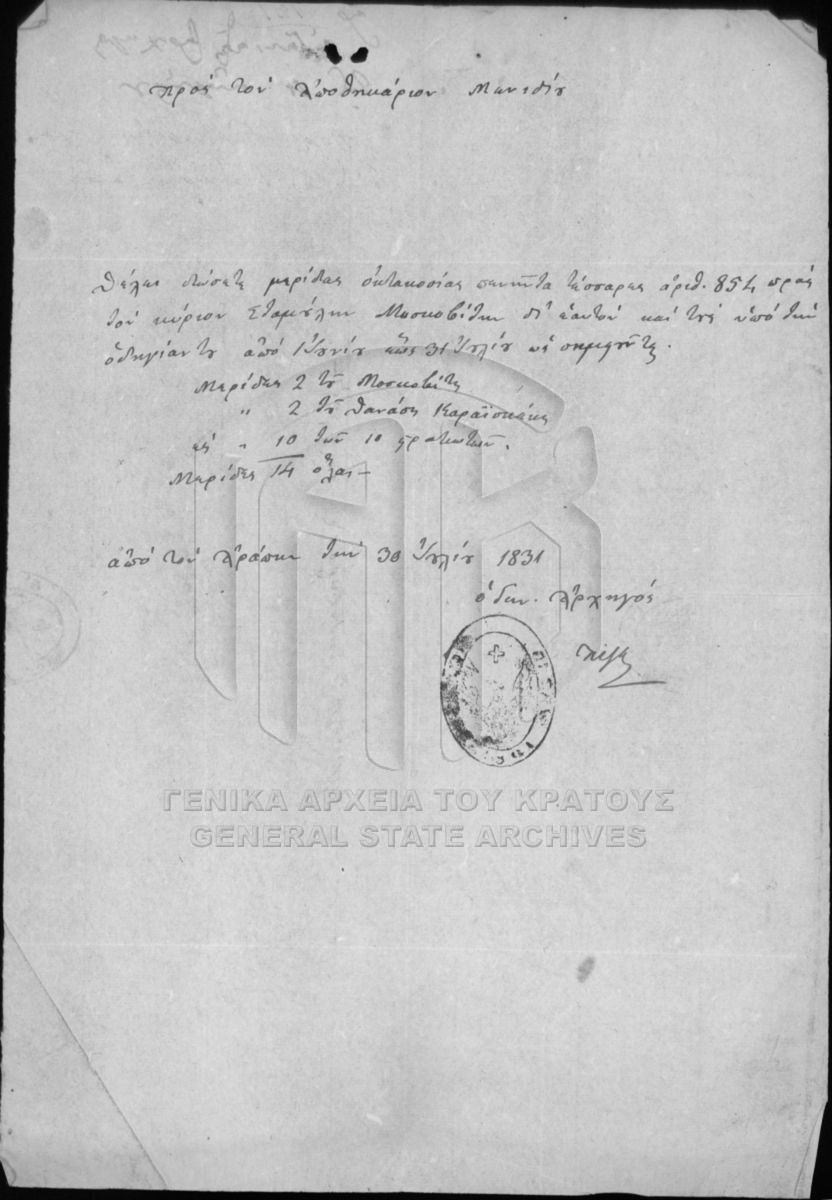 Πρός τόν Ἀποθηκάριον Μανιδίου
Θέλει δώσετε μερίδας ὀκτακοσίας πενῆντα τέσσαρες ἀριθ. 854 πρός
τόν κύριον Σταμούλην Μοσκοβίτην δι' ἑαυτόν καί τούς ὑπό τήν
ὁδηγίαν του ἀπό 1 Ἰουνίου ἕως 31 Ἰουλίου ὡς σημειοῦνται.
Μερίδες 2 τοῦ Μοσκοβίτη
" 2 τοῦ Θανάση Καραϊσκάκη
" 10 τῶν 10 στρατιωτῶν.
Μερίδες 14 ὅλαι
ἀπό τόν Ἀράπην τήν 30 Ἰουλίου 1831
ὁ Γεν. Ἀρχηγός
ΓΕΝΙΚΑ ΑΡΧΕΙΑ ΤΟΥ ΚΡΑΤΟΥΣ
GENERAL STATE ARCHIVES